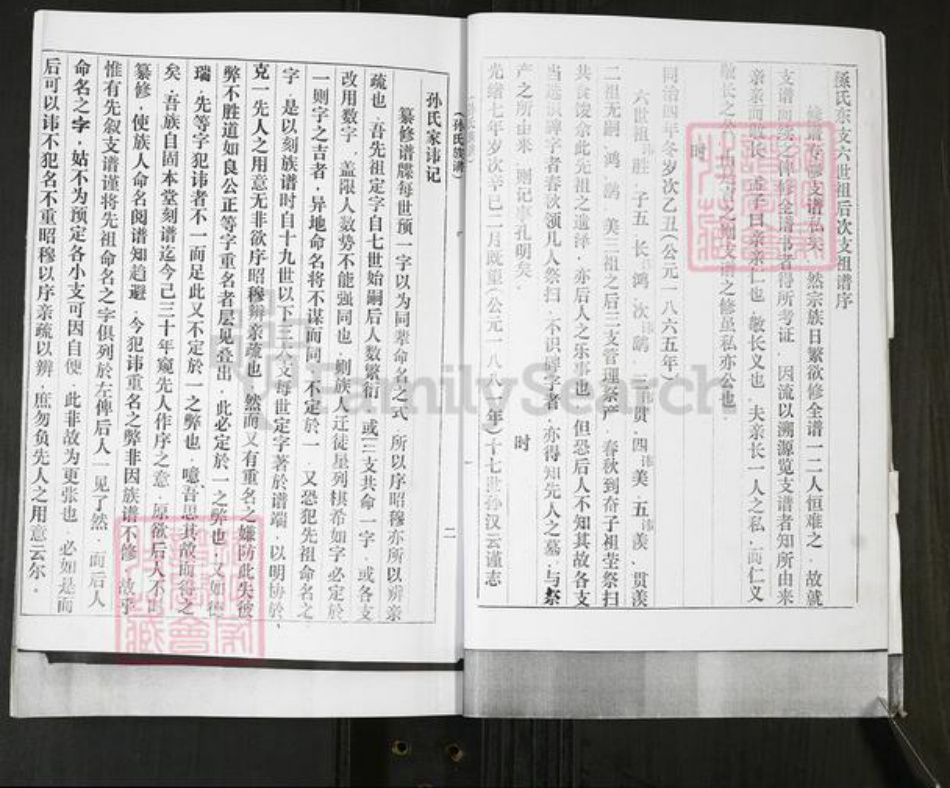 孫氏东支六世祖后次支祖谱序
然宗族日繁欲修全谱一二人恒难之．故就
支谱而续之俾修全谱书者得所考证．因流以溯源览支谱者知所由来
亲亲而敬长．孟子曰亲亲仁也．敬长义也．夫亲长一人之私．而仁义
之修虽私亦公也
时
同治四年冬岁次乙丑（公元一八六五年）
六世祖讳胜．子五．长讳鸿．次讳鹄．三讳贯．四讳美．五讳羡．贯羡
二祖无嗣．鸿．鹄．美三祖之后三支管理祭产．春秋到奇子祖茔祭扫
共食馂余此先祖之遗泽．亦后人之乐事也．但恐后人不知其故各支
当选识碑字者春秋领儿人祭扫．不识碑字者．亦得知先人之墓．与祭
产之所由来．则记事孔明矣．
时
光绪七年岁次辛巳二月既望（公元一八八一年）十七世孙汉云谨志
（孙氏族谱）
二
孙氏家讳记
纂修谱牒每世预一字以为同辈命名之式．所以序昭穆亦所以辨亲
疏也．吾先祖定字自七世始嗣后人数繁衍．或二三支共命一字．或各支
改用数字．盖限人数势不能强同也．则族人迁徒星列棋希如字必定於
一则字之吉者．异地命名将不谋而同．不定於一．又恐犯先祖命名之
字．是以刻族谱时自十九世以下三十人文每世定字著於谱端．以明协於
克一先人之用意无非欲序昭穆辨亲疏也．然而又有重名之嫌防此失彼
弊不胜道如良公正等字重名者层见叠出．此必定於一之弊也．又如德
瑞．先等字犯讳者不一而足此又不定於一之弊也．噫．吾思其故而得之
矣．吾族自固本堂刻谱迄今己三十年窥先人作序之意．原欲后人不
纂修．使族人命名阅谱知趋避．今犯讳重名之弊非因族谱不修．故乎
惟有先叙支谱谨将先祖命名之字俱列於左俾后人一见了然．而后人
命名之字，姑不为预定各小支可因自便．此非故为更张也．必如是而
后可以讳不犯名不重昭穆以序亲疏以辨．庶勿负先人之用意云尔．
FamilySearch